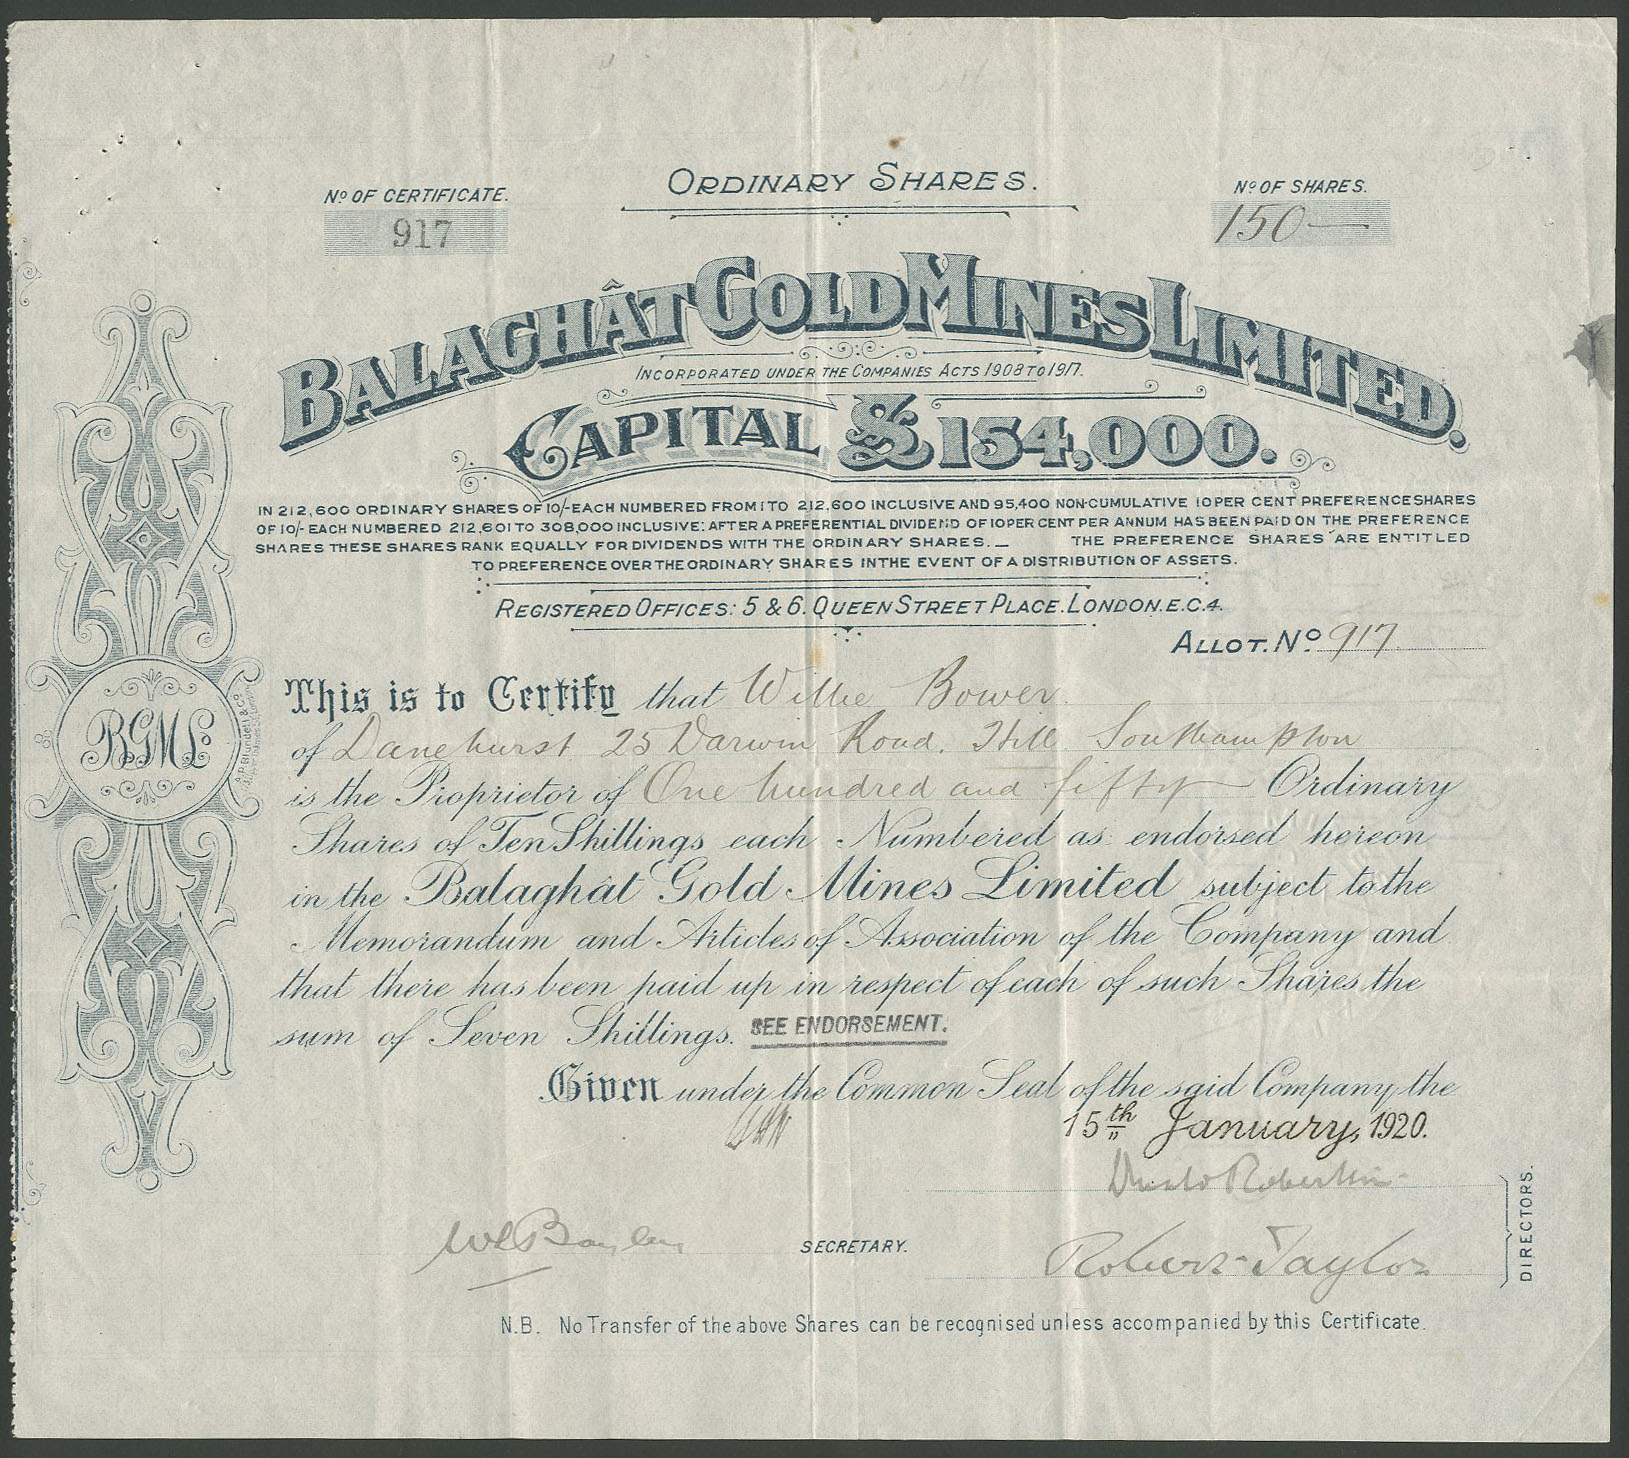 ORDINARY SHARES.
Nº OF CERTIFICATE.
917
Nº OF SHARES.
150
BALAGHÂT GOLD MINES LIMITED.
INCORPORATED UNDER THE COMPANIES ACTS 1908 TO 1917.
CAPITAL £154,000.
IN 212,600 ORDINARY SHARES OF 10/- EACH NUMBERED FROM 1 TO 212,600 INCLUSIVE AND 95,400 NON-CUMULATIVE 10 PER CENT PREFERENCE SHARES
OF 10/- EACH NUMBERED 212,601 TO 308,000 INCLUSIVE: AFTER A PREFERENTIAL DIVIDEND OF 10 PER CENT PER ANNUM HAS BEEN PAID ON THE PREFERENCE
SHARES THESE SHARES RANK EQUALLY FOR DIVIDENDS WITH THE ORDINARY SHARES. — THE PREFERENCE SHARES ARE ENTITLED
TO PREFERENCE OVER THE ORDINARY SHARES IN THE EVENT OF A DISTRIBUTION OF ASSETS.
REGISTERED OFFICES: 5 & 6. QUEEN STREET PLACE. LONDON. E.C.4.
ALLOT. Nº 917
This is to Certify that Willie Bower
of Danehurst 25 Darwin Road. Hill Southampton
is the Proprietor of One hundred and fifty Ordinary
Shares of Ten Shillings each Numbered as endorsed hereon
in the Balaghât Gold Mines Limited subject to the
Memorandum and Articles of Association of the Company and
that there has been paid up in respect of each of such Shares the
sum of Seven Shillings. SEE ENDORSEMENT.
Given under the Common Seal of the said Company, the
15th January, 1920.
Robert Taylor
SECRETARY.
DIRECTORS.
N.B. No Transfer of the above Shares can be recognised unless accompanied by this Certificate.
BGML
A.P. Blundell & Co.